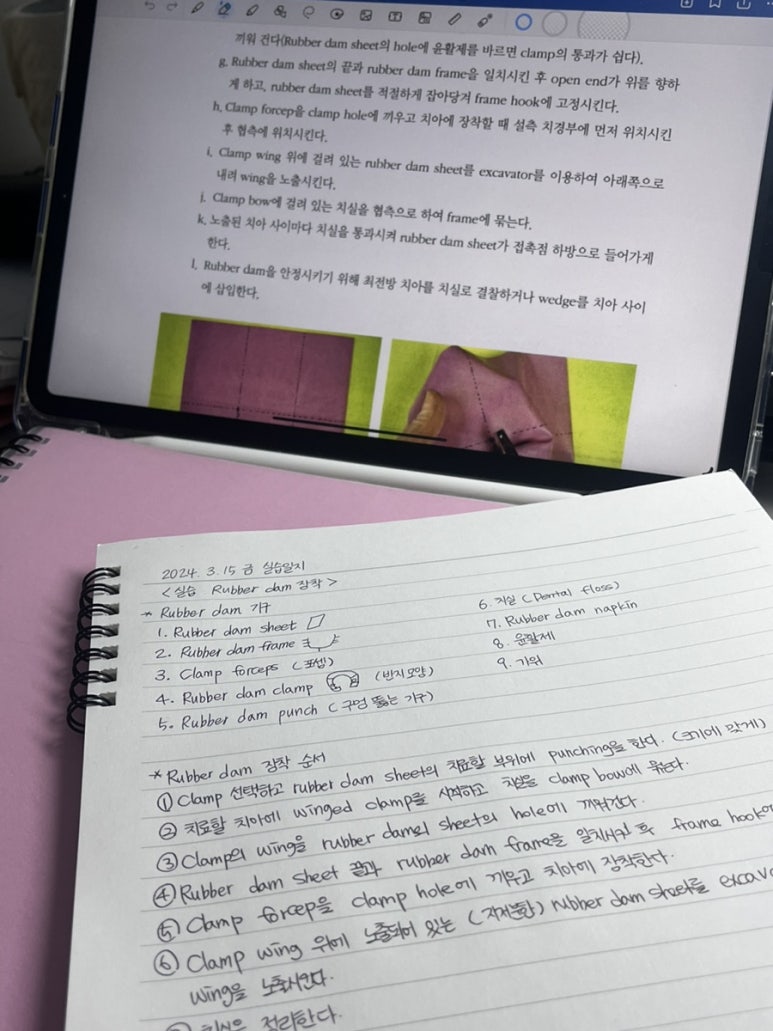 끼워 건다(Rubber dam sheet의 hole에 윤활제를 바르면 clamp의 통과가 쉽다).
g. Rubber dam sheet의 끝과 rubber dam frame을 일치시킨 후 open end가 위를 향하
게 하고, rubber dam sheet를 적절하게 잡아당겨 frame hook에 고정시킨다.
h. Clamp forcep을 clamp hole에 끼우고 치아에 장착할 때 설측 치경부에 먼저 위치시킨
후 협측에 위치시킨다.
i. Clamp wing 위에 걸려 있는 rubber dam sheet를 excavator를 이용하여 아래쪽으로
내려 wing을 노출시킨다.
j. Clamp bow에 걸려 있는 치실을 협측으로 하여 frame에 묶는다.
k. 노출된 치아 사이마다 치실을 통과시켜 rubber dam sheet가 접촉점 하방으로 들어가게
한다.
l. Rubber dam을 안정시키기 위해 최전방 치아를 치실로 결찰하거나 wedge를 치아 사이
에 삽입한다.
2024. 3. 15 금 실습일지
<실습 Rubber dam 장착>
* Rubber dam 기구
1. Rubber dam sheet
2. Rubber dam frame
3. Clamp forceps (포셉)
4. Rubber dam clamp (반지모양)
5. Rubber dam punch (구멍 뚫는 기구)
6. 치실 (Dental floss)
7. Rubber dam napkin
8. 윤활제
9. 가위
* Rubber dam 장착 순서
① Clamp 선택하고 rubber dam sheet의 치료할 부위에 punching을 한다. (크기에 맞게)
② 치료할 치아에 winged clamp를 시적하고 치실을 clamp bow에 묶는다.
③ Clamp의 wing을 rubber dam의 sheet의 hole에 끼워건다.
④ Rubber dam sheet 끝과 rubber dam frame을 일치시킨 후 frame hook에
⑤ Clamp forcep을 clamp hole에 끼우고 치아에 장착한다.
⑥ Clamp wing 위에 노출되어 있는 rubber dam sheet를 excava
wing을 노출시킨다.
치실을 정리한다.